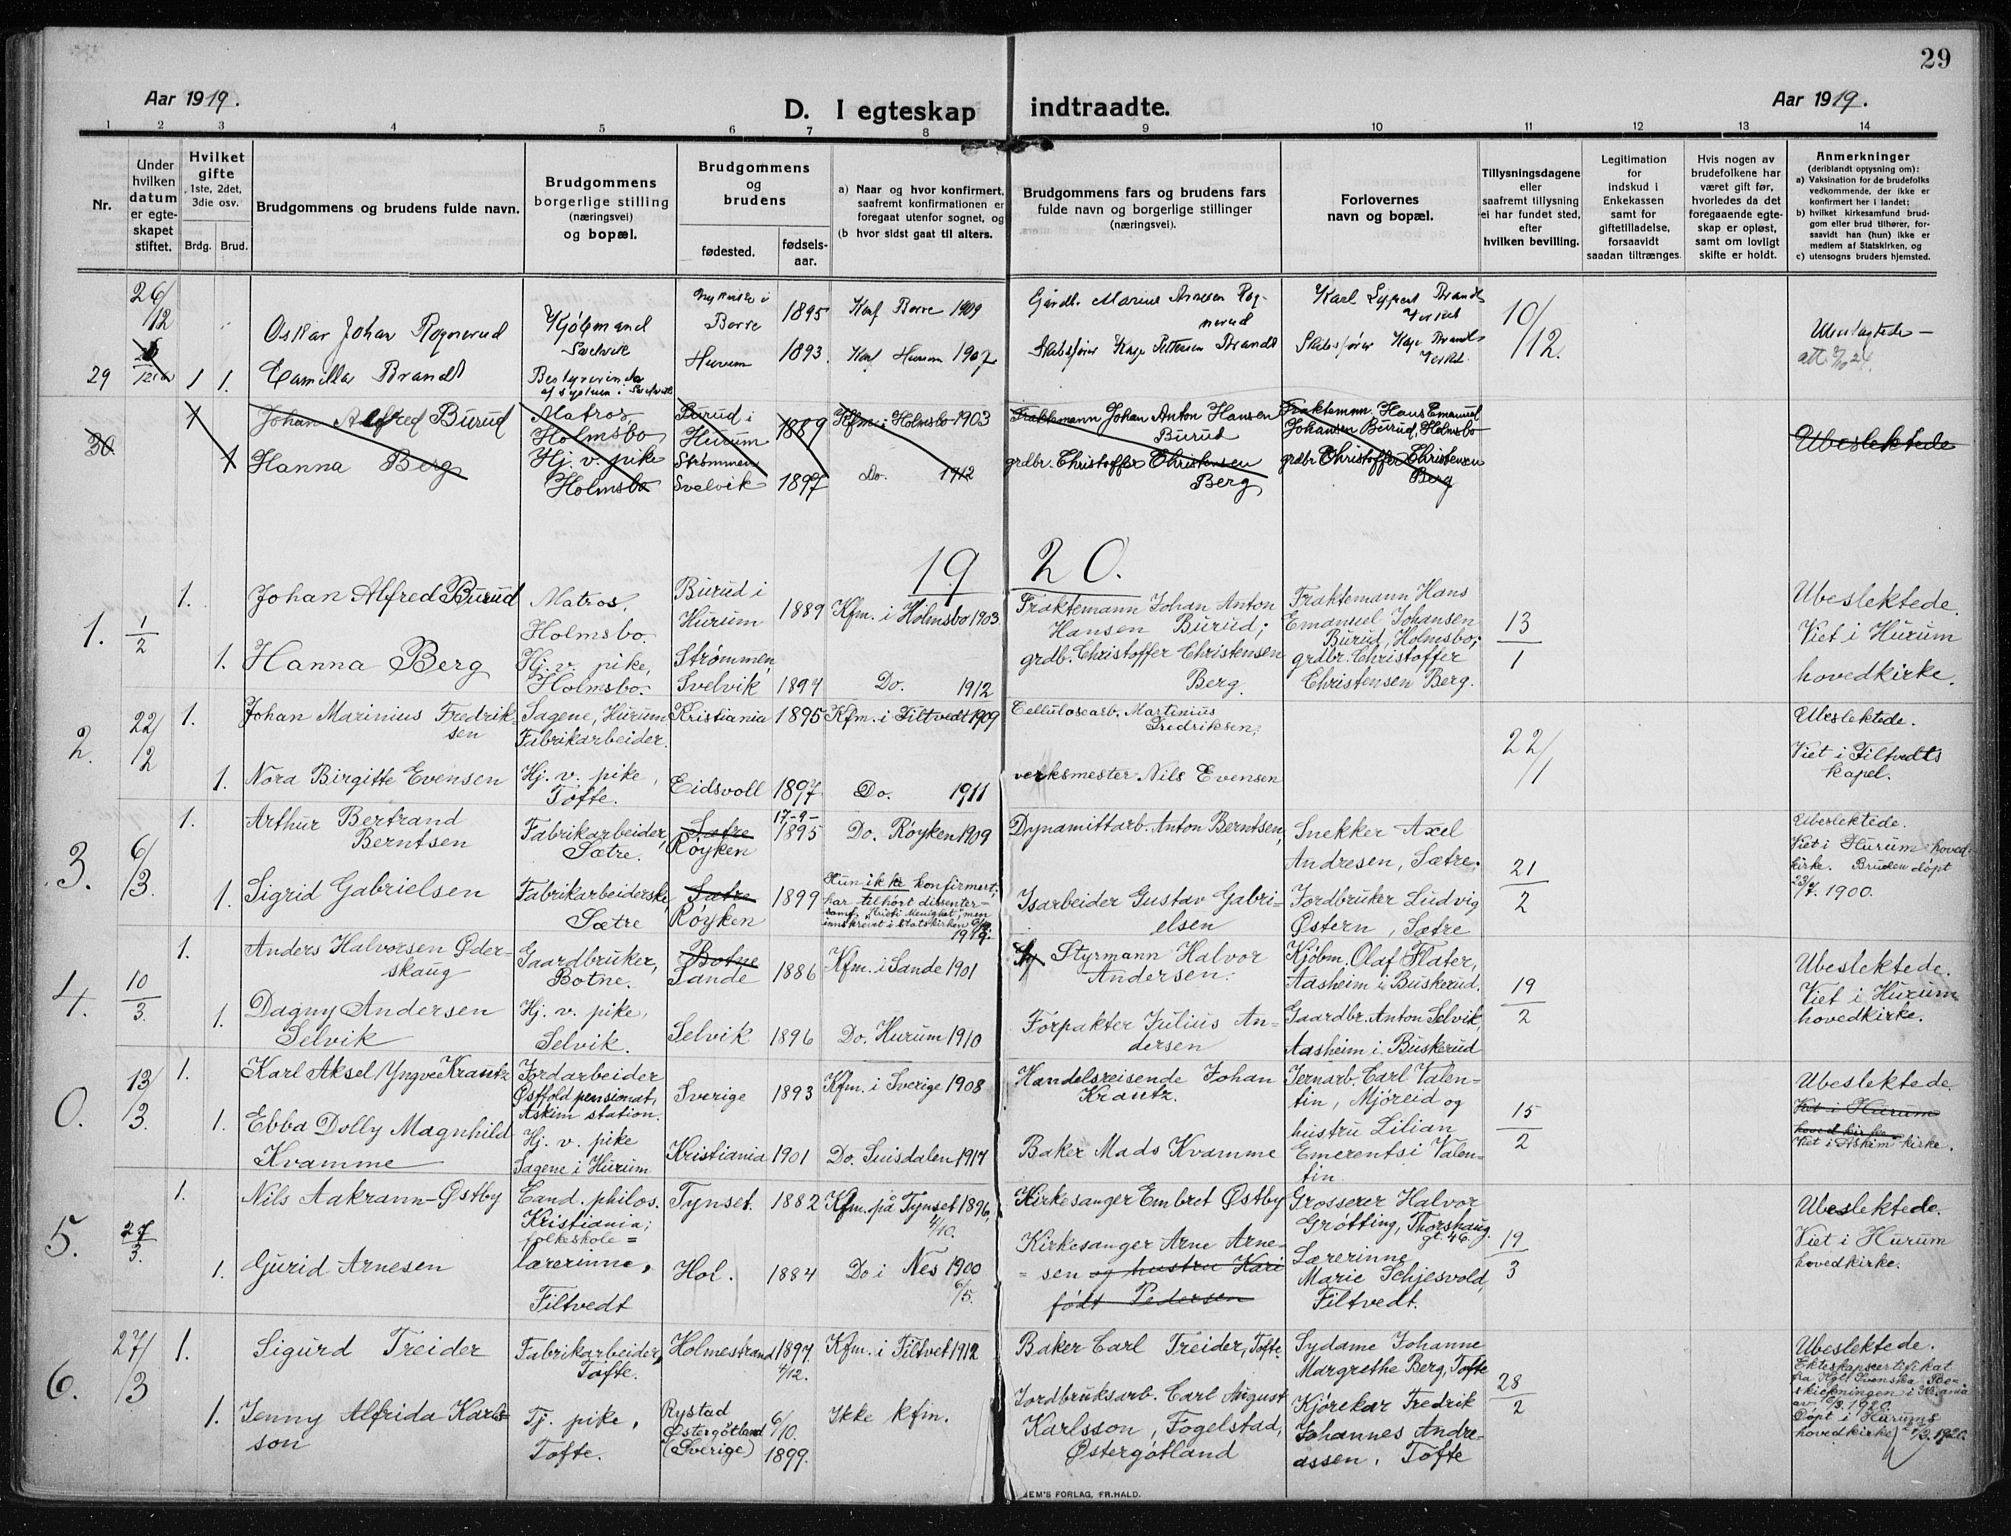 29
Aar 1919.
D. I egteskap indtraadte.
Aar 1919.
1 2 3 4 5 6 7 8 9 10 11 12 13 14
Nr.
Under hvilken datum er egteskapet stiftet.
Hvilket gifte
1ste, 2det, 3die osv.
Brdg. Brud.
Brudgommens og brudens fulde navn.
Brudgommens borgerlige stilling (næringsvei) og bopæl.
Brudgommens og brudens
fødested. fødselsaar.
a) Naar og hvor konfirmert, saafremt konfirmationen er foregaat utenfor sognet, og
(b hvor sidst gaat til alters.
Brudgommens fars og brudens fars fulde navn og borgerlige stillinger (næringsvei).
Forlovernes navn og bopæl.
Tillysningsdagene eller saafremt tillysning ei har fundet sted, efter hvilken bevilling.
Legitimation for indskud i Enkekassen samt for giftetilladelse, forsaavidt saadan tiltrænges.
Hvis nogen av brudefolkene har været gift før, hvorledes da det foregaaende egteskap er opløst, samt om lovligt skifte er holdt.
Anmerkninger
(deriblandt oplysning om):
a) Vaksination for de brudefolks vedkommende, der ikke er konfirmert her i landet;
b) hvilket kirkesamfund brudgom eller brud tilhører, forsaavidt han (hun) ikke er medlem af Statskirken, og
c) utensogns bruders hjemsted.
29 26/12 1 1.
Oskar Johan Rognerud
Kjøpmand
Svelvik
Borre 1895 Konf Borre 1909
Gårdbr. Marius Arnesen Rognerud
10/12.
Ubeslægtede
Camilla Brandt
Bestyrerinde
Hurum 1893. Konf Hurum 1907
30 1
Johan Alfred Burud
Matros
Holmsbo
Burud i Hurum 1889 Kfm. i Holmsbo 1903
Fraktemann Johan Anton Hansen Burud
Fraktemann Hans Emanuel Johansen Burud, Holmsbo
Ubeslektede
1
Hanna Berg
Hj. v. pike
Holmsbo
Strømmen
Svelvik 1897 Do. 1912
grdbr. Christoffer Christensen Berg
grdbr. Christoffer Christensen Berg
1920.
1. 1/2 1.
Johan Alfred Burud
Matros,
Holmsbo.
Burud i Hurum 1889 Kfm. i Holmsbo 1903.
Fraktemann Johan Anton Hansen Burud;
Fraktemann Hans Emanuel Johansen Burud, Holmsbo;
13/1
Ubeslektede.
Viet i Hurum hovedkirke.
1.
Hanna Berg
Hj. v. pike,
Holmsbo.
Strømmen,
Svelvik 1897 Do. 1912
grdb. Christoffer Christensen Berg.
grdbr. Christoffer Christensen Berg.
2. 22/2 1.
Johan Marinius Fredriksen
Sagene, Hurum
Fabrikarbeider.
Kristiania 1895 Kfm. i Filtvedt 1909
Cellulosearb. Martenius Fredriksen,
22/1
Ubeslektede.
Viet i Filtvedts kapel.
1.
Nora Birgitte Evensen
Hj. v. pike,
Tofte.
Eidsvoll 1897 Do. 1911
verksmester Nils Evensen
3. 6/3. 1.
Arthur Bertrand Berntsen
Fabrikarbeider,
Sætre.
Sætre
Røyken 17-9-1895 Do. Røyken 1909
Dynamittarb. Anton Berntsen,
Snekker Axel Andresen, Sætre.
21/2
Ubeslektede.
Viet i Hurum hovedkirke. Bruden døpt 23/7. 1900.
1.
Sigrid Gabrielsen
Fabrikarbeiderske,
Sætre
Sætre
Røyken 1899
Hun ikke konfirmert;
har tilhørt dissentersamf. "Kristi Menighet", men innskrevet i statskirken 1919.
Isarbeider Gustav Gabrielsen
Jordbruker Ludvig Østern, Sætre
4. 10/3. 1.
Anders Halvorsen Øderskaug
Gaardbruker,
Botne.
Botne
Sande 1886 Kfm. i Sande 1901
Styrmann Halvor Andersen.
Kjøbm. Olaf Flater,
Aasheim i Buskerud.
19/2
Ubeslektede.
Viet i Hurum hovedkirke.
1.
Dagny Andersen Selvik
Hj. v. pike,
Selvik.
Selvik 1896 Do. Hurum 1910
Forpakter Julius Andersen
Gaardbr. Anton Selvik,
Aasheim i Buskerud
0. 13/3. 1.
Karl Aksel Yngve Krantz
Jordarbeider
Østfold pensionat,
Askim station.
Sverige 1893 Kfm. i Sverige 1908
Handelsreisende Johan Krantz.
Jernarb. Carl Valentin, Mjøreid og
hustru Lilian Emerentsi Valentin
15/2
Ubeslektede.
Viet i Hurum hovedkirke
Viet i Askim kirke.
1.
Ebba Dolly Magnhild Kvamme
Hj. v. pike
Sagene i Hurum
Kristiania 1901 Do. Suisdalen 1917
Baker Mads Kvamme
5. 27/3. 1.
Nils Aakrann-Østby
Cand. philos.
Kristiania;
Tynset. 1882 Kfm. på Tynset 1896, 4/10.
Kirkesanger Embret Østby
Grosserer Halvor Grøtting, Thorshaug gt. 46.
19/3
Ubeslektede.
Viet i Hurum hovedkirke.
1.
Gurid Arnesen
folkeskolelærerinne,
Filtvedt
Hol. 1884 Do i Nes 1900 6/5.
Kirkesanger Arne Arnesen og hustru Kari født Pedersen
Lærerinne
Marie Schjesvold,
Filtvedt.
6. 27/3 1.
Sigurd Treider
Fabrikarbeider,
Tofte.
Holmestrand 1897 4/12. Kfm. i Filtvet 1912
Baker Carl Treider, Tofte
Sydame Johanne Margrethe Berg, Tofte
28/2
Ubeslektede.
Ekteskapscertifikat fra Kgl. Svenska Beskickningen i Kr.ania av /3. 1920.
Døpt i Hurums hovedkirke /3. 1920.
1.
Jenny Alfrida Karlsson
Tj. pike,
Tofte.
Rystad
Østergøtland
(Sverige) 6/10. 1899. Ikke kfm.
Jordbruksarb. Carl August Karlsson, Fogelstad,
Østergøtland
Kjørekar Fredrik Johannes Andreassen, Tofte
SEM'S FORLAG, FR.HALD.